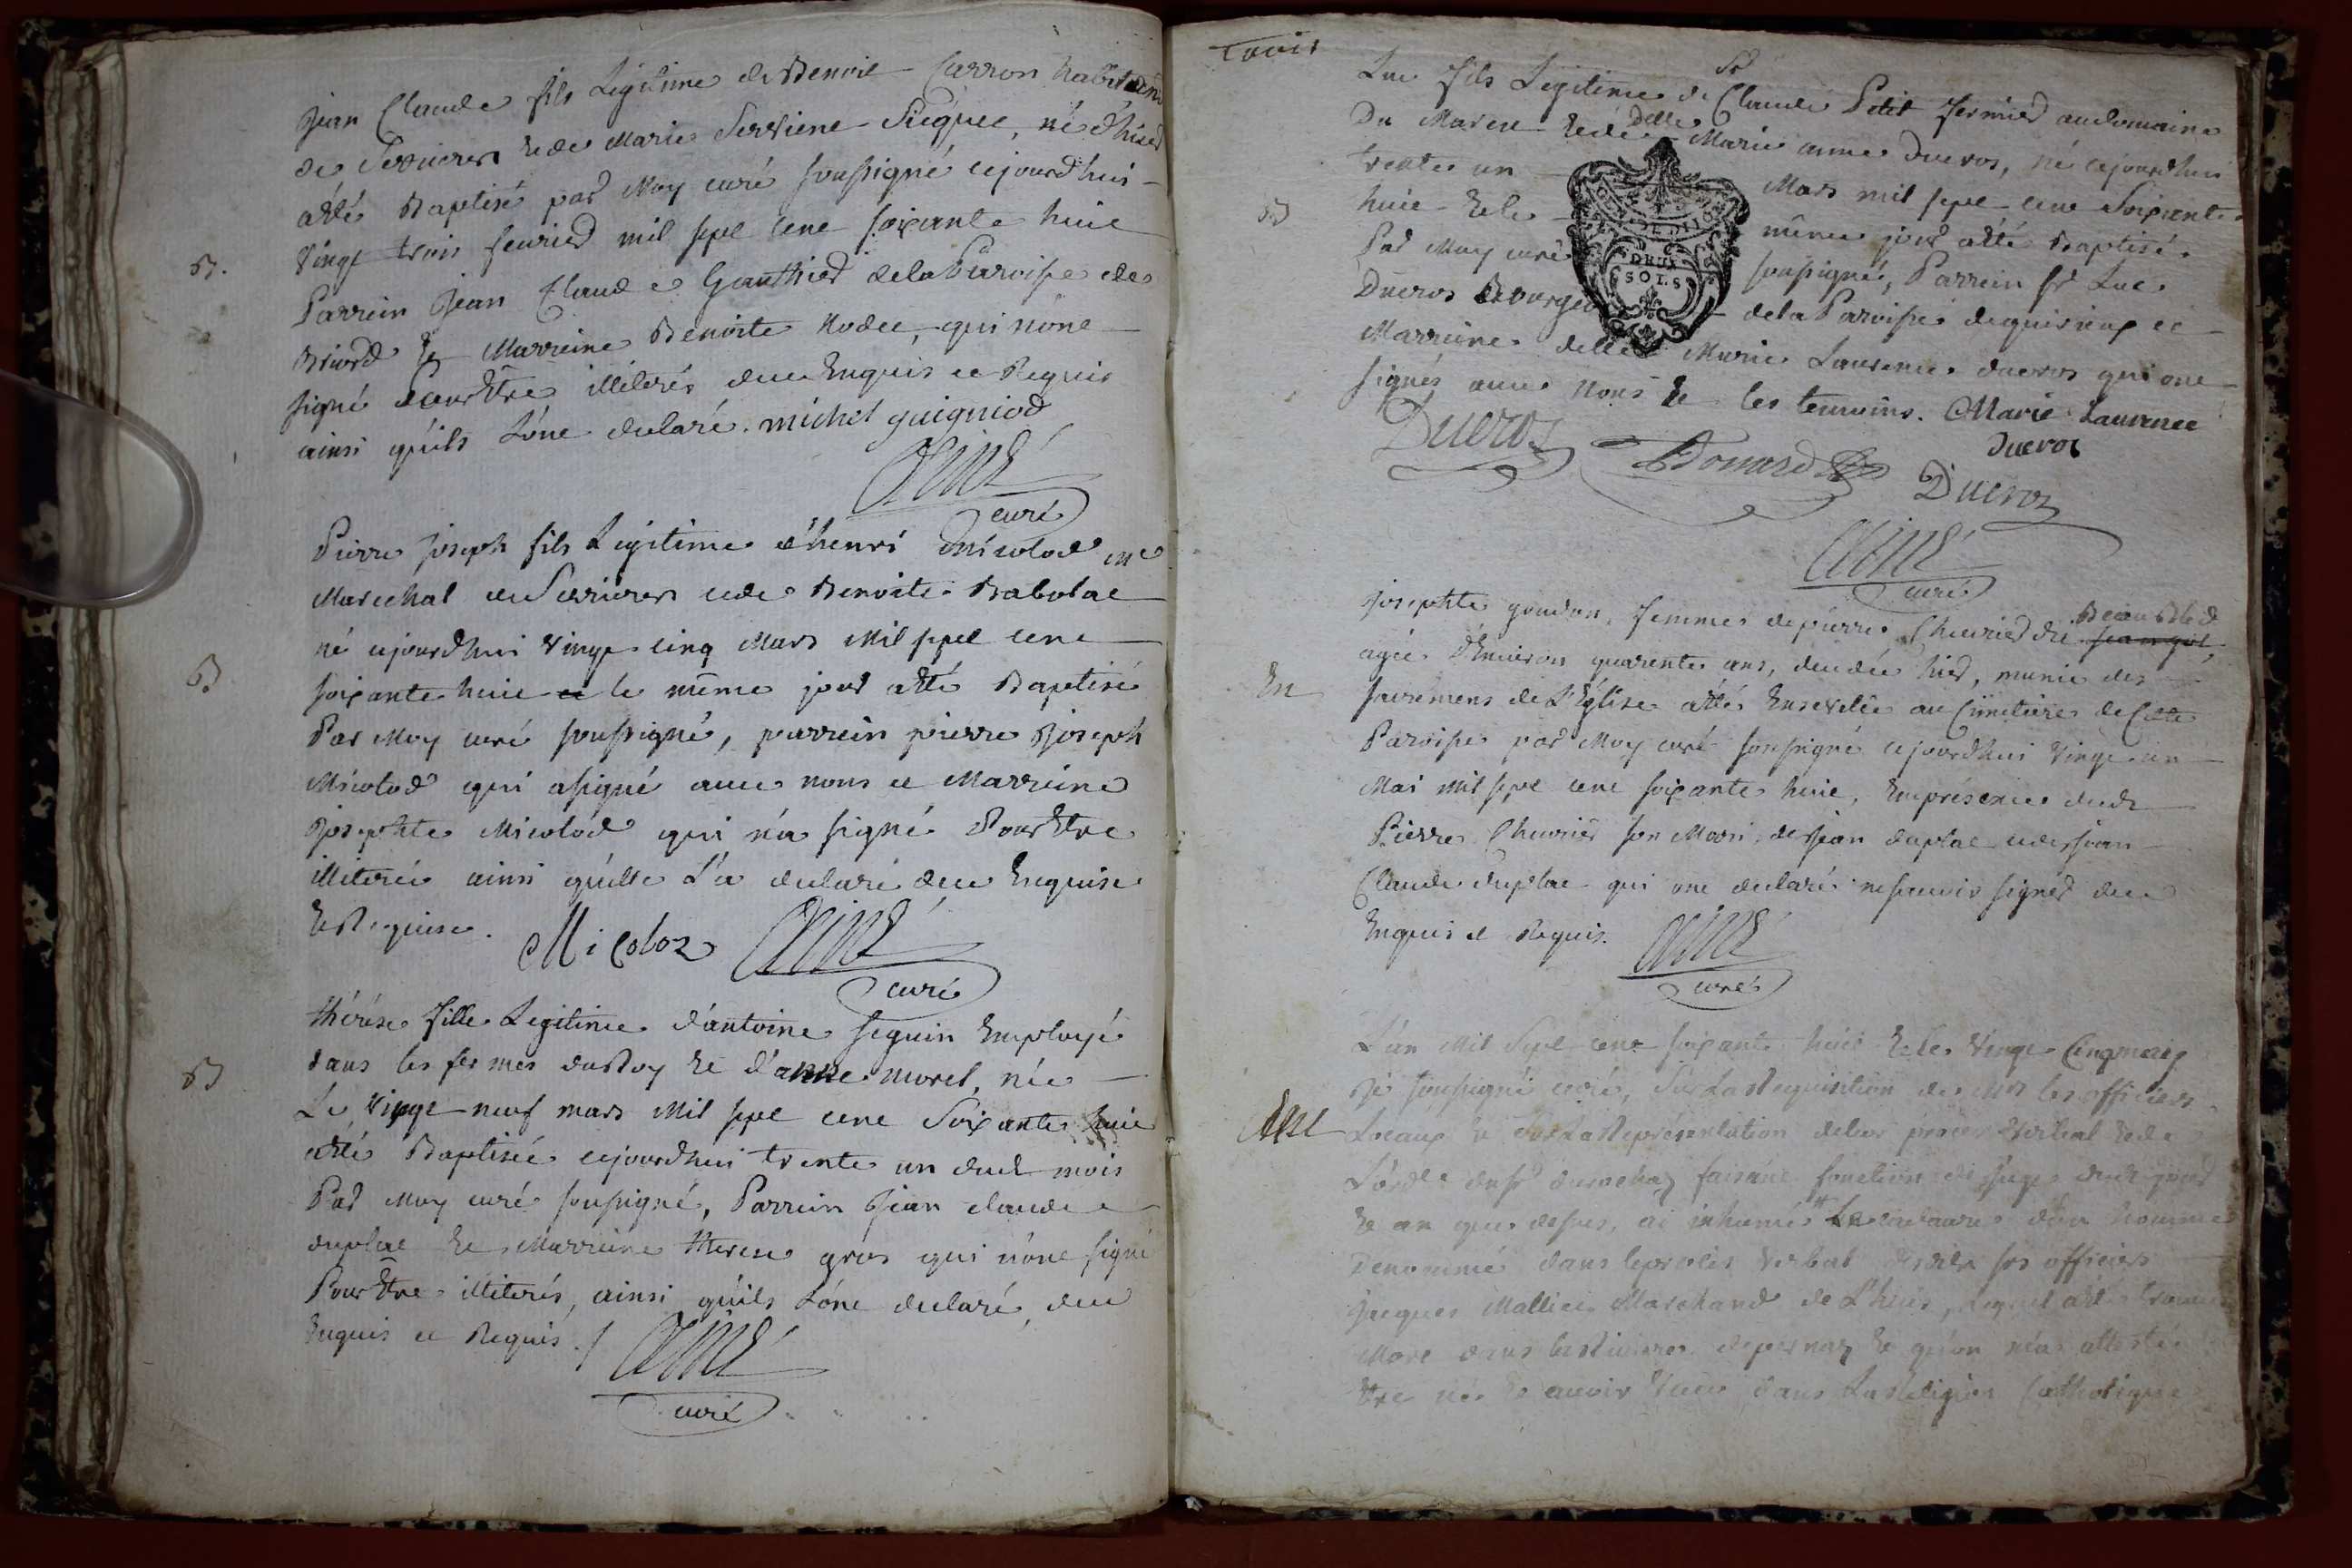 Jean Claude fils Légitime de Benoit Carron habitant
de Serrieres & de Marie Serviene Siéquet, né d'hier
atté Baptisé par Moy curé soussigné cejourdhui
vingt trois fevrier mil sept cent soixante huit
B.
Parrein Jean Claude Gauthier de la Paroisse de
Briord & Marreine Benoite Nodet, qui nónt
signé pour Etre illiterés deue Enquis et Requis
ainsi qu'ils L'ónt declaré. michel guigniod
curé
Pierre joseph fils Légitime d'henri Micolod me
Marechal de Serrieres et de Benoite Babolat
né cejourdhui vingt cinq Mars Mil sept cent
B
soixante huit et le même jour atté Baptisé
Par Moy curé soussigné, parrein pierre Joseph
Micolod qui a signé avec nous et Marreine
Josephte Micolod qui n'a signé Pour Etre
illiterée ainsi qu'elle L'a declaré deue Enquise
& Requise. Micoloz
curé
thérése fille Legitime d'antoine seguin Employé
dans les fermes du Roy & d'anne morel, née
B
Le vingt neuf mars Mil sept cent Soixante huit
atté Baptisée cejourdhui trente un dud mois
Par Moy curé soussigné, Parrein Jean claude
duplat & Marreine therese gros qui nónt signé
Pour Etre illiterés, ainsi qu'ils L'ónt declaré, deue
Enquis et Requis./
curé
trois
Luc fils Légitime de Sr Claude Petit fermier au domaine
Du Marest & de delle Marie anne Ducros, né cejourdhui
trente un Mars mil sept cent Soixante
B
huit & le même jour atté Baptisé
DEUX
SOLS
Par Moy curé soussigné, Parrein Sr Luc
Ducros Bourgeois de la Paroisse de quirieux et
Marreine delle Marie Laurence ducros qui ont
signés avec Nous & les temoins. Marie Laurence
Ducros
Ducros Bonard Ducros
curé
Josephte goudon, femme de pierre Chevrier dit Beau Bled
agée d'Environ quarente ans, decedée hier, munie des
En
sacremens de L'Église atté Ensevelie au Cimetiere de Cette
Paroisse par Moy curé soussigné cejourdhui vingt un
Mai mil sept cent soixante huit, En présence dud
Pierre Chevrier son Mari, de Jean duplat et de Jean
Claude duplat qui ont declaré ne scavoir signer deue
Enquis et Requis.
curé
L'an Mil Sept cent soixante huit & le vingt Cinq mai
Je soussigné curé, sur La Requisition de Mrs les officiers
Locaux & sur La Representation de leur procès verbal & de
L'ord. du sr faisant fonction de juge dud jour
& an que dessus, ai inhumé le cadavre d'un homme
Denommé dans le procès verbal desdits srs officiers
Jacques Mallier Marchand de L'huis, Lequel atté trouvé
Mort dans la Riviere & qu'on m'a attesté
Etre né & avoir vecu dans La Religion Catholique